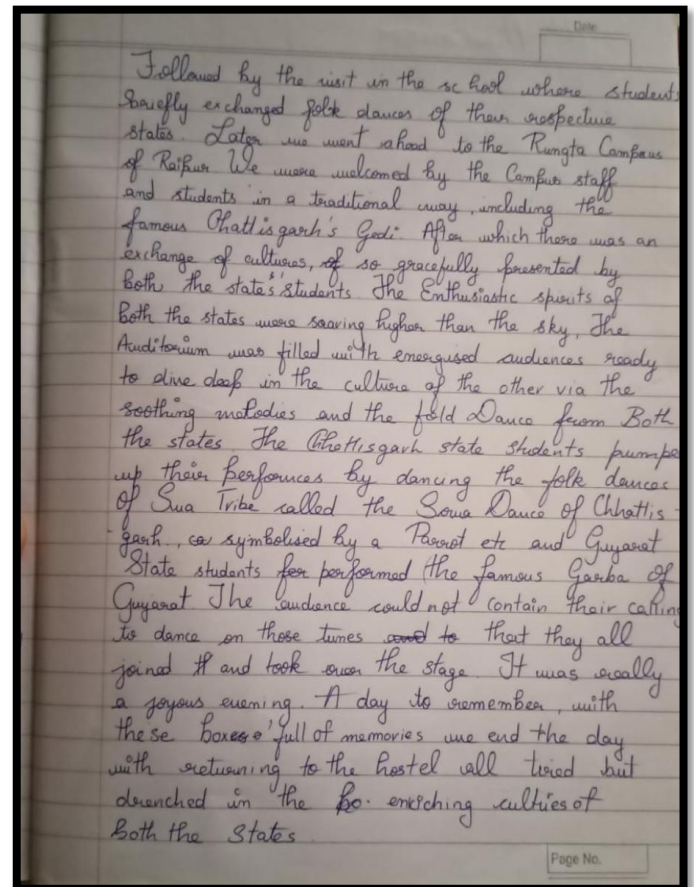 Date
Followed by the visit in the school where students
briefly exchanged folk dances of their respective
states. Later we went ahead to the Rungta Campus
of Raipur We were welcomed by the Campus staff
and students in a traditional way, including the
famous Chattisgarh's Gedi. After which there was an
exchange of cultures, of so gracefully presented by
both the states' students. The Enthusiastic spirits of
both the states were soaring higher than the sky, The
Auditorium was filled with energused audiences ready
to dive deep in the culture of the other via the
soothing melodies and the fold Dance from Both
the states The Chhattisgarh state students pumpe
up their perfornces by dancing the folk dances
of Sua Tribe called the Sowa Dance of Chhattis-
garh, symbolised by a Parrot etc and Gujarat
State students performed the famous Garba of
Gujarat The audience could not contain their calling
to dance on those tunes and to that they all
joined and took over the stage. It was really
a joyous evening. A day to remember, with
these boxes' full of memories we end the day
with returning to the hostel all tired but
drenched in the enriching culties of
both the States
Page No.